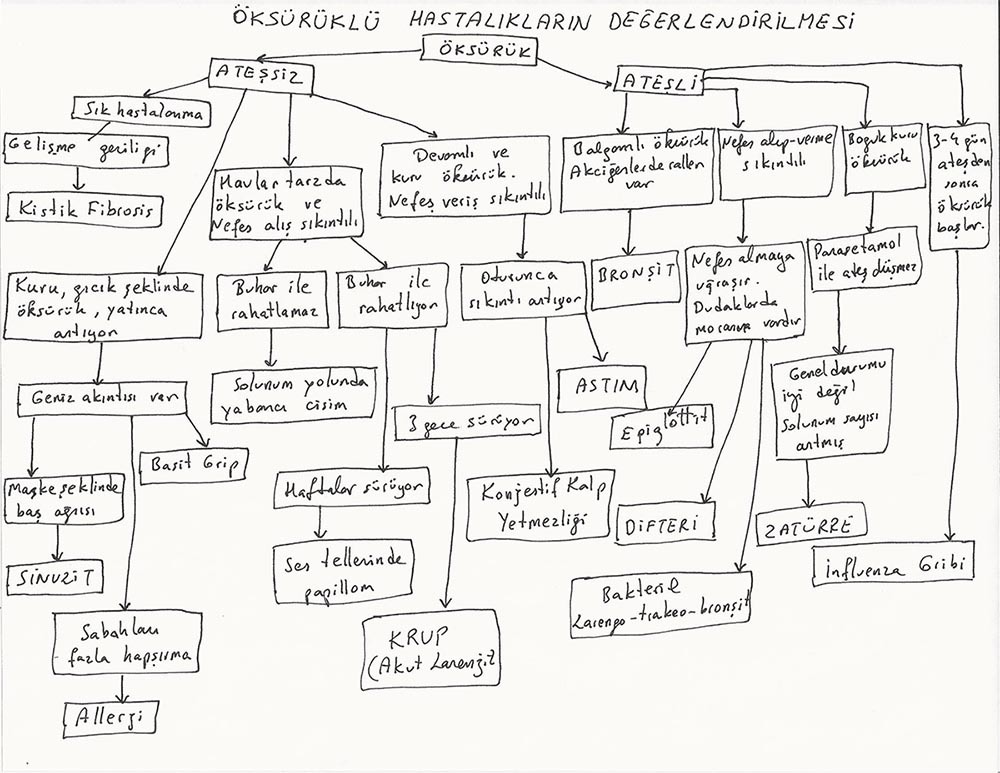 ÖKSÜRÜKLÜ HASTALIKLARIN DEĞERLENDİRİLMESİ
ÖKSÜRÜK
ATEŞSİZ
ATEŞLİ
Sık hastalanma
Gelişme geriliği
Kistik Fibrosis
Havlar tarzda
öksürük ve
Nefes alış sıkıntılı
Devamlı ve
kuru öksürük.
Nefes veriş sıkıntılı
Balgamlı öksürük
Akciğerlerde raller
var
Nefes alıp-verme
sıkıntılı
Boğuk kuru
öksürük
3-4 gün
ateşden
sonra
öksürük
başlar.
Kuru, gıcık şeklinde
öksürük, yatınca
artıyor
Buhar ile
rahatlamaz
Buhar ile
rahatlıyor
Oturunca
sıkıntı artıyor
BRONŞİT
Nefes almaya
uğraşır.
Dudaklarda
morarma vardır
Parasetamol
ile ateş düşmez
Geniz akıntısı var
Solunum yolunda
yabancı cisim
3 gece sürüyor
ASTIM
Epiglottit
Genel durumu
iyi değil
Solunum sayısı
artmış
Basit Grip
Maske şeklinde
baş ağrısı
Haftalar sürüyor
Konjestif Kalp
Yetmezliği
DİFTERİ
ZATÜRRE
SİNÜZİT
Ses tellerinde
papillom
İnfluenza Gribi
Bakteriel
Larengo-trakeo-bronşit
Sabahları
fazla hapşırma
KRUP
(Akut Larenjit
Allerji